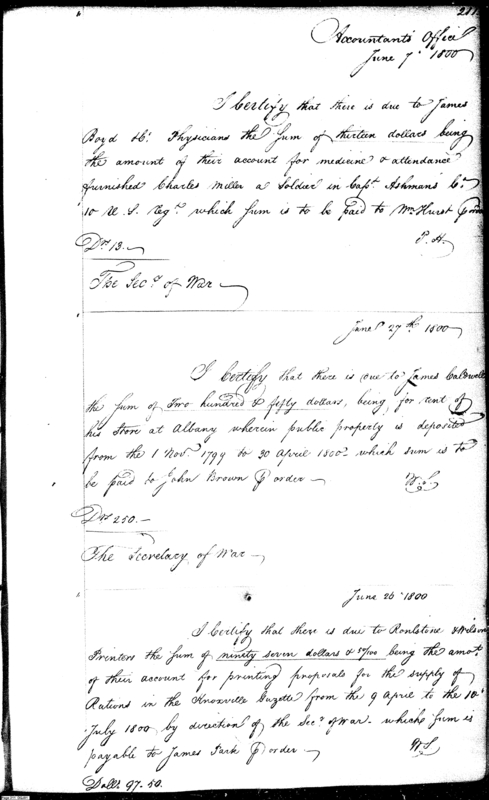 Accountants Office
June 7th 1800
I Certify that there is due to James
Boyd &Co. Physicians the Sum of thirteen dollars being
the amount of their account for medicine & attendance
furnished Charles Miller a Soldier in Capt. Ashmans Co.
10 U.S. Regt. which sum is to be paid to Wm Hurst
Drs 13.
The Secy. of War
June 27th 1800
I Certify that there is due to James Caldwell
the sum of Two hundred & fifty dollars, being, for rent of
his Store at Albany wherein public property is deposited
from the 1 Novr 1799 to 30 April 1800 which sum is to
be paid to John Brown P order
W.S.
Drs 250.—
The Secretary of War
June 26 1800
I Certify that there is due to Roulstone & Wilson
Printers the Sum of ninety seven dollars & 50/100 being the amot
of their account for printing proposals for the supply of
Rations in the Knoxville Gazette from the 9 April to the 10
July 1800 by direction of the Secy of War. which Sum is
payable to James Park P order
WS
Dolls. 97.50.